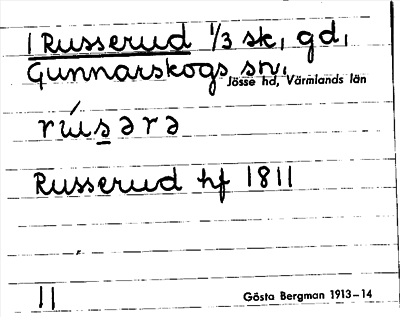 1 Russerud 1/3 sk, gd,
Gunnarskogs sn,
Jösse hd, Värmlands län
rúsərə
Russerud hf 1811
11
Gösta Bergman 1913–14